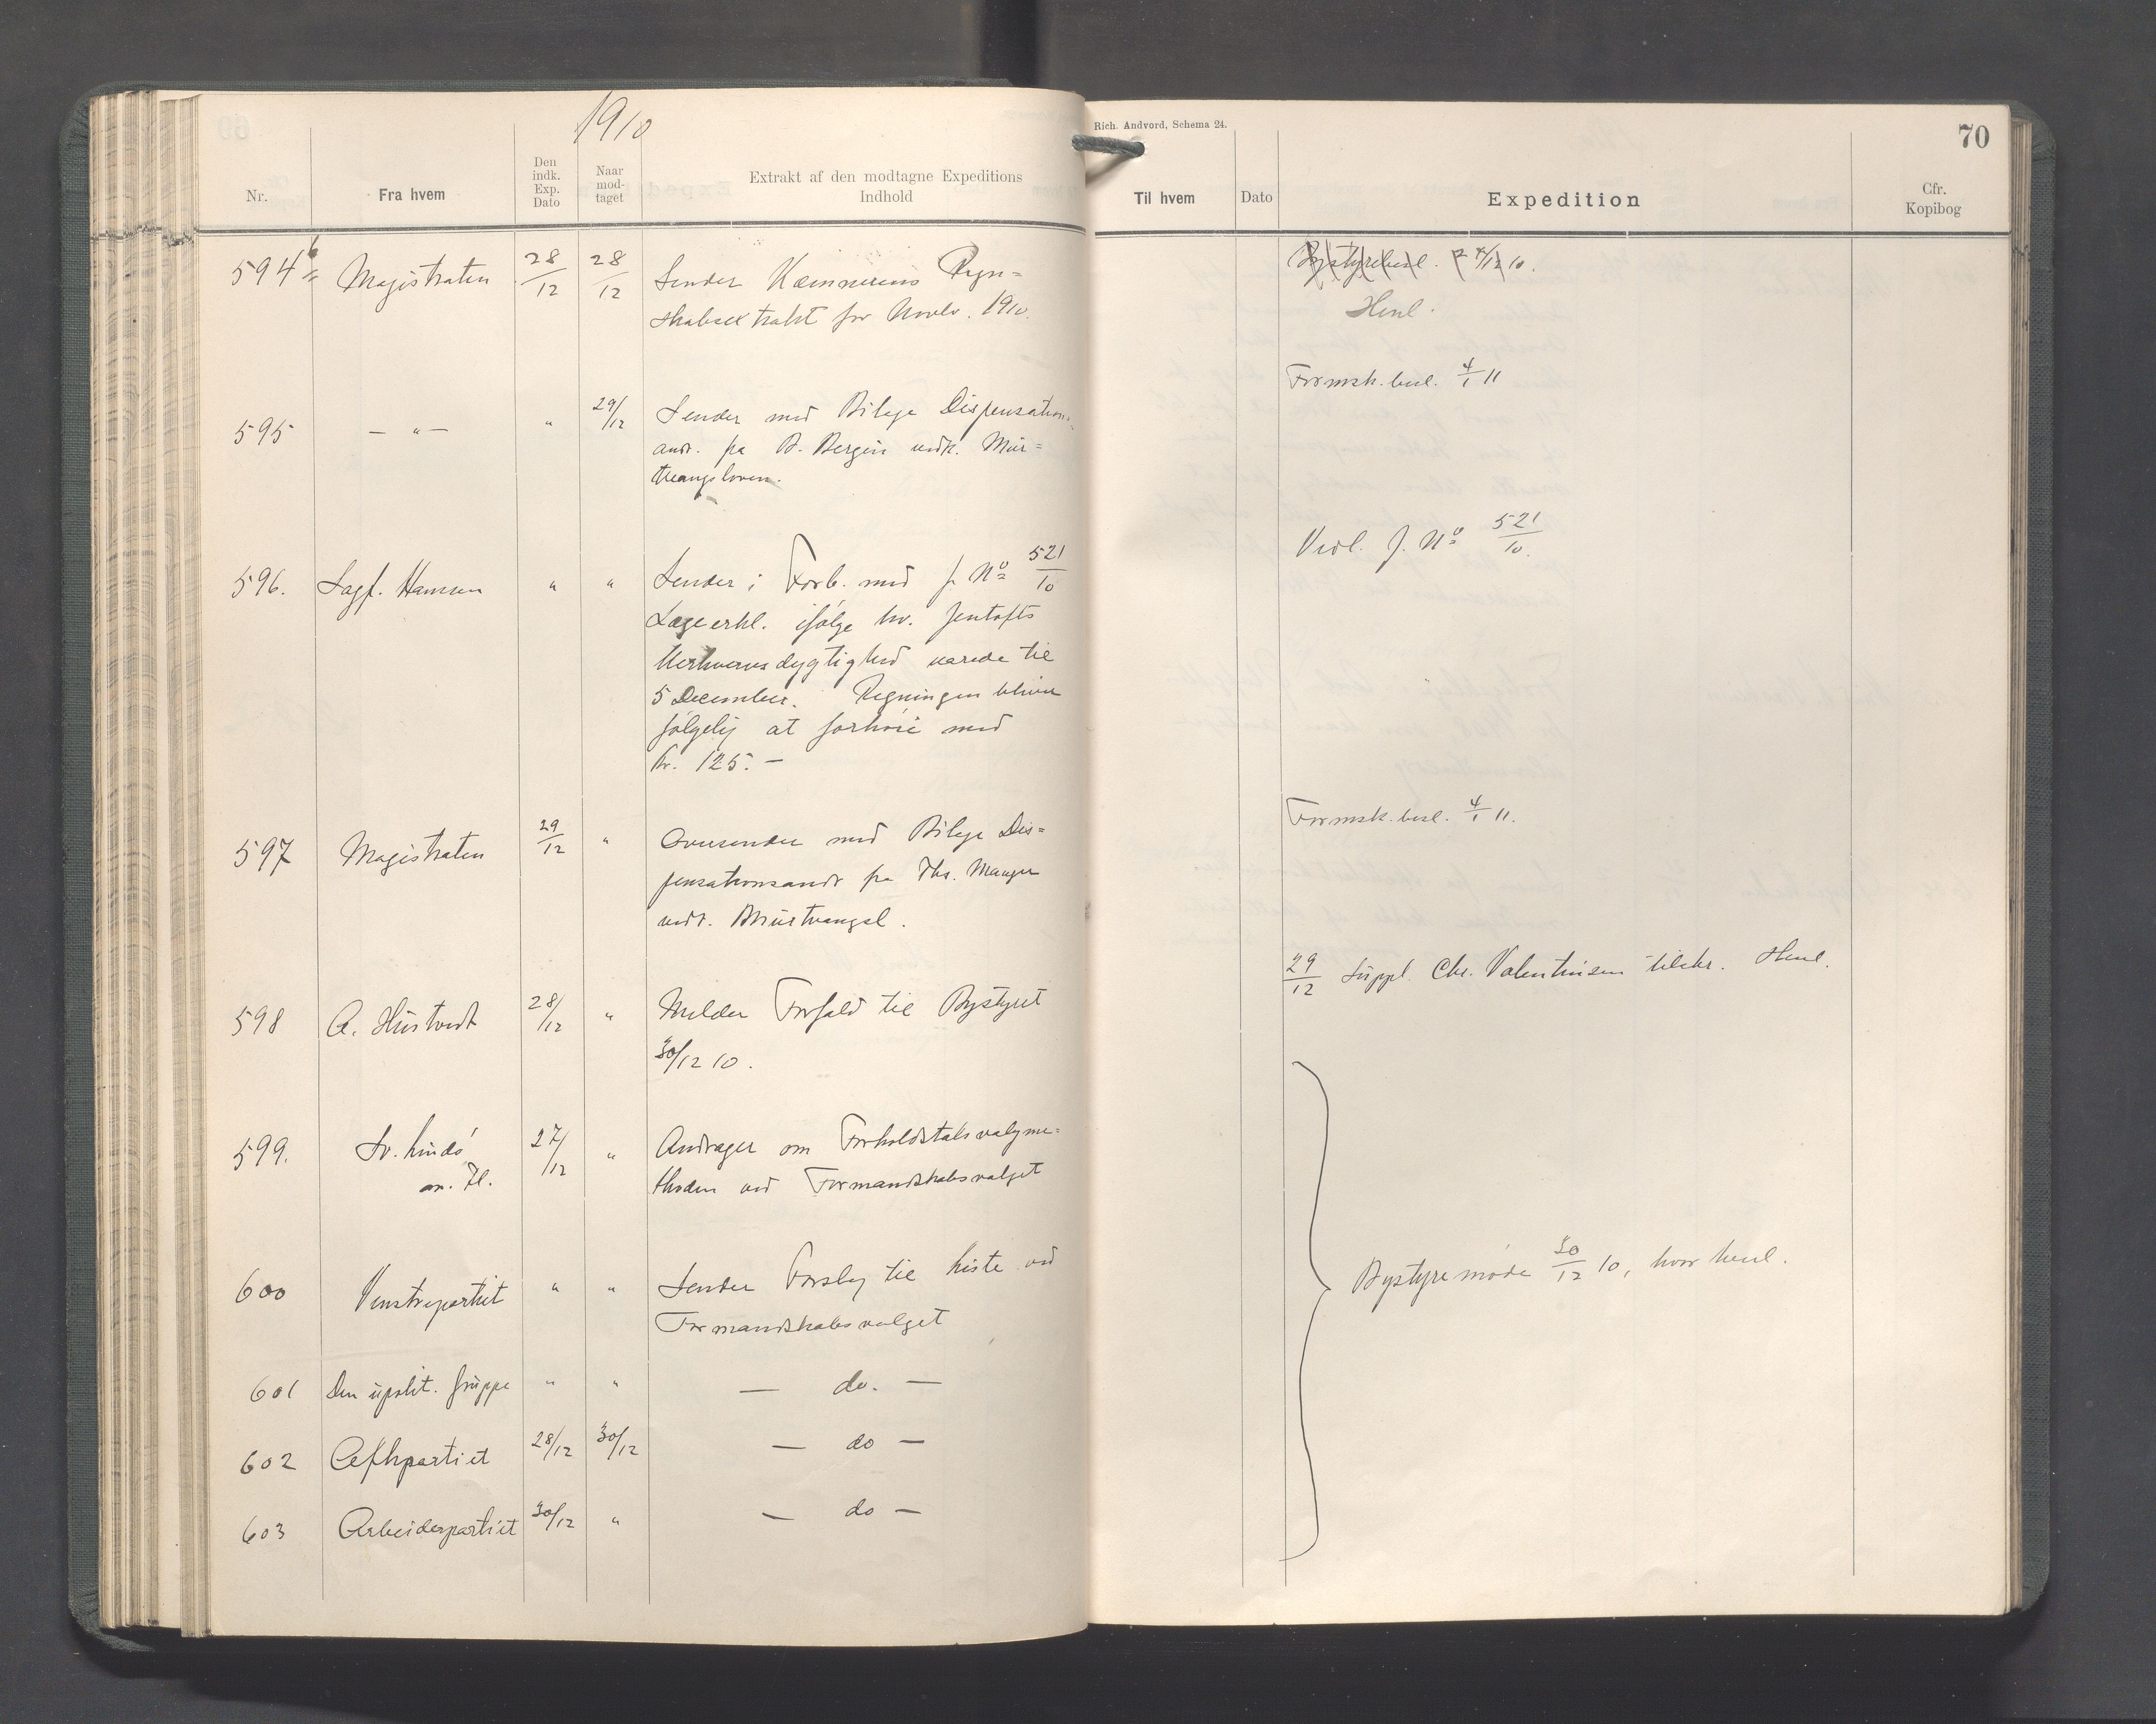 1910
Nr.
Fra hvem
Den
indk.
Exp.
Dato
Naar
mod-
taget
Extrakt af den modtagne Expeditions
Indhold
594 b
Magistraten
28/12
28/12
Sender Kæmnerens Regn=
skabsextrakt for Novbr. 1910.
595
— " —
"
29/12
Sender med Bilage Dispensations
andr. fra B. Bergin vedk. Mur=
tvangsloven.
596.
Sagf. Hansen
"
"
Sender i Forb. med J. No 521/10
Lægeerkl. ifølge hv. Jentofts
Uerhvervsdygtighed varede til
5 December. Regningen bliver
følgelig at forhøie med
Kr. 125.—
597
Magistraten
29/12
"
Oversender med Bilage Dis=
pensationsandr fra Ths. Manger
vedr. Murtvangsl.
598
A. Hustvedt
28/12
"
Melder Forfald til Bystyret
30/12 10.
599.
Sv. Lindø
m. Fl.
27/12
"
Andrager om Forholdstalsvalgme=
thoden ved Formandskabsvalget
600
Venstrepartiet
"
"
Sender Forslag til Liste ved
Formandskabsvalget
601
Den upolit. Gruppe
"
"
— do. —
602
Afhpartiet
28/12
30/12
— do —
603
Arbeiderpartiet
30/12
"
— do —
Rich. Andvord, Schema 24.
70
Til hvem
Dato
Expedition
Cfr.
Kopibog
Bystyrebesl.
Henl.
Formsk. besl. 4/1 11
Vedl. J. No 521/10.
Formsk. besl. 4/1 11.
29/12 Suppl. Chr. Valentinsen tilskr. Henl.
Bystyremøde 30/12 10, hvor henl.